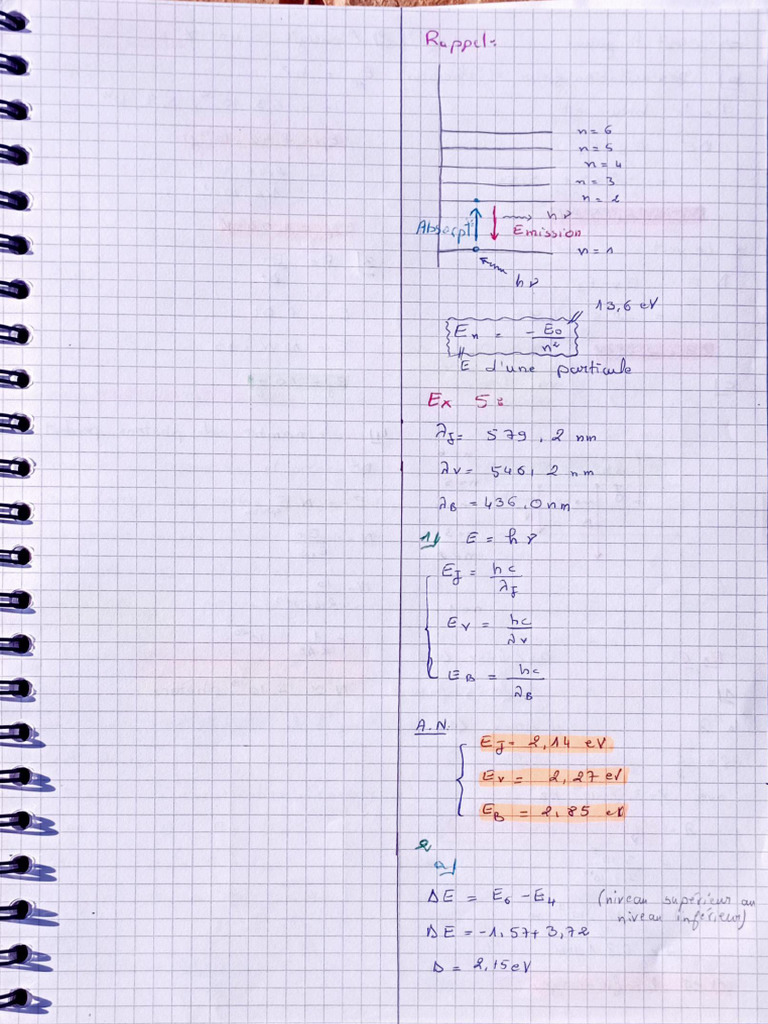 Rappel:
n = 6
n = 5
n = 4
n = 3
n = 2
hν
Absorpt°
Emission
n = 1
hν
13,6 eV
En = -E0/n²
E d'une particule
Ex 5:
λJ = 579,2 nm
λV = 546,2 nm
λB = 436,0 nm
1) E = hν
EJ = hc/λJ
EV = hc/λV
EB = hc/λB
A.N.
EJ = 2,14 eV
EV = 2,27 eV
EB = 2,85 eV
2
a)
ΔE = E6 - E4 (niveau supérieur au
niveau inférieur)
ΔE = -1,57 + 3,72
Δ = 2,15 eV